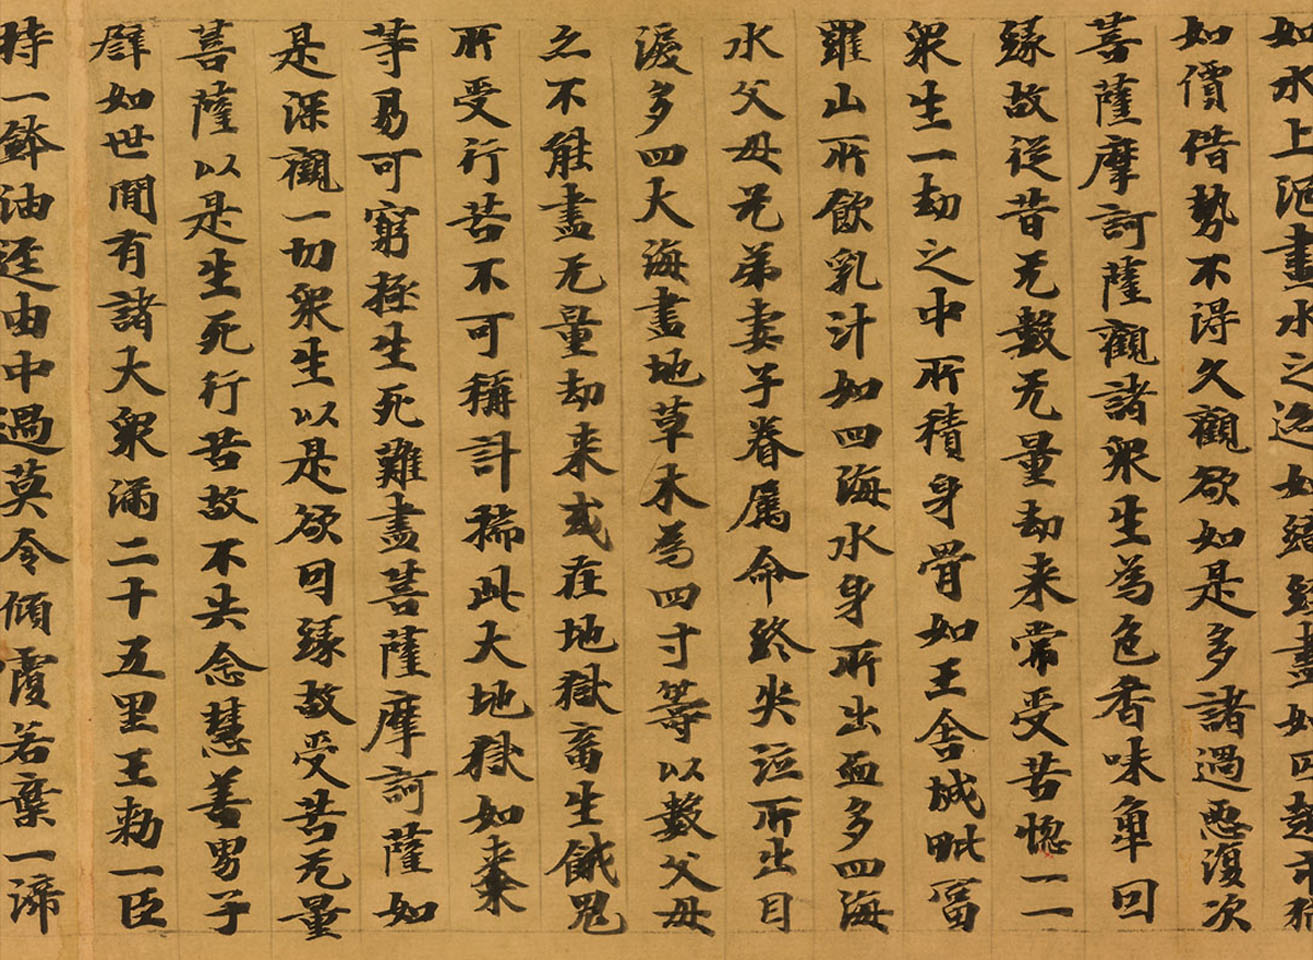 如水上泡畫水之迹如織經盡如囚趣市猶
如價借勢不得久觀欲如是多諸過惡復次
菩薩摩訶薩觀諸衆生為色香味觕囙
緣故從昔无數无量劫来常受苦惱一一
衆生一劫之中所積身骨如王舍城毗富
羅山所飲乳汁如四海水身所出血多四海
水父母兄弟妻子眷属命終哭泣所出目
淚多四大海盡地草木為四寸籌以數父母
之不能盡无量劫来或在地獄畜生餓鬼
所受行苦不可稱計揣此大地猶如棗
等易可窮極生死難盡菩薩摩訶薩如
是深觀一切衆生以是欲囙緣故受苦无量
菩薩以是生死行苦故不失念慧善男子
譬如世間有諸大衆滿二十五里王勑一臣
持一鉢油逕由中過莫令傾覆若棄一渧